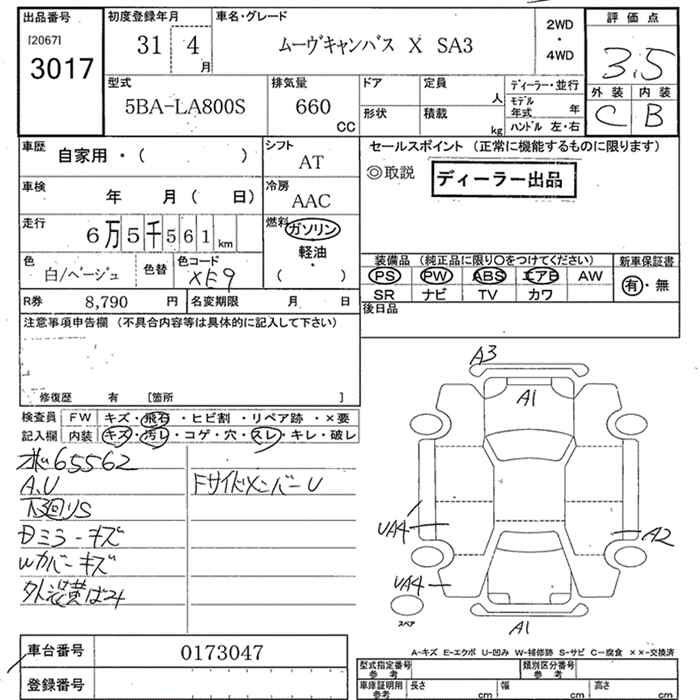 出品番号 初度登録年月 車名・グレード 2WD ・ 4WD 評価点
[2067]
3017 31 4月 ムーヴキャンバス X SA3 3.5
型式 排気量 ドア 定員 人 ディーラー・並行 外装 内装
5BA-LA800S 660 CC 形状 積載 kg モデル年式 年 C B
ハンドル 左・右
車歴 自家用・( ) シフト AT セールスポイント(正常に機能するものに限ります)
◎取説 ディーラー出品
車検 年 月( 日) 冷房 AAC
走行 6万5千561km 燃料 ガソリン
軽油・
( )
色 白/ベージュ 色替 色コード XE9 装備品(純正品に限り○をつけてください) 新車保証書
PS PW ABS エアB AW 有・無
SR ナビ TV カワ
R券 8,790 円 名変期限 月 日 後日品
注意事項申告欄(不具合内容等は具体的に記入して下さい)
修復歴 有 [箇所 ]
検査員 FW キズ・飛石・ヒビ割・リペア跡・×要
記入欄 内装 キズ・汚レ・コゲ・穴・スレ・キレ・破レ
65562
A,U FサイドメンバーU
下回りS
Dミラーキズ
Wカバーキズ
A3
A1
UA4 A2
UA4
スペア A1
A-キズ E-エクボ U-凹み W-補修跡 S-サビ C-腐食 ××-交換済
車台番号 0173047
登録番号
型式指定番号 参考 類別区分番号 参考
車庫証明用 参考 長さ cm 幅 cm 高さ cm